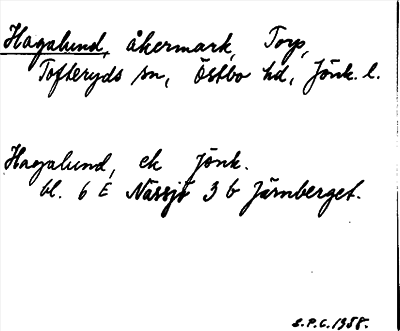 Hagalund, åkermark, Torp,
Tofteryds sn, Östbo hd, Jönk. l.
Hagalund, ek Jönk.
bl. 6 E Nässjö 3 b Järnberget.
S.P.C. 1958.